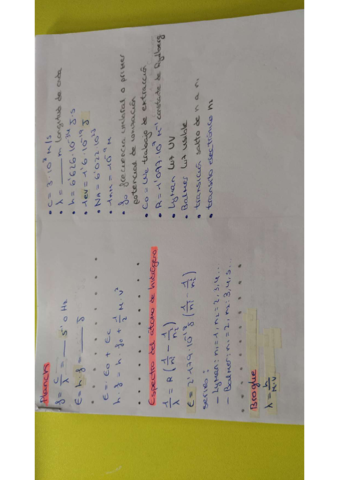 Planck
f = c/λ = ___ s⁻¹ o Hz
E = h·f = ___ J
E = E₀ + Ec
h·f = h·f₀ + 1/2 M v²
Espectro del átomo de hidrógeno
1/λ = R (1/n₁² - 1/n₂²)
E = 2'179·10⁻¹⁸ J (1/n₁² - 1/n₂²)
series:
- Lyman: n₁=1, n₂=2,3,4...
- Balmer: n₁=2, n₂=3,4,5...
Broglie
λ = h/M·v
• c = 3·10⁸ m/s
• λ = ___ m longitud de onda
• h = 6'626·10⁻³⁴ J·s
• 1eV = 1'6·10⁻¹⁹ J
• NA = 6'022·10²³
• 1nm = 10⁻⁹ m
• f₀ frecuencia umbral o primer
potencial de ionización
• E₀ = W₀ trabajo de extracción
• R = 1'097·10⁷ m⁻¹ constante de Rydberg
• Lyman luz UV
• Balmer luz visible
• transición salto de n a n₁
• tránsito electrónico n₂